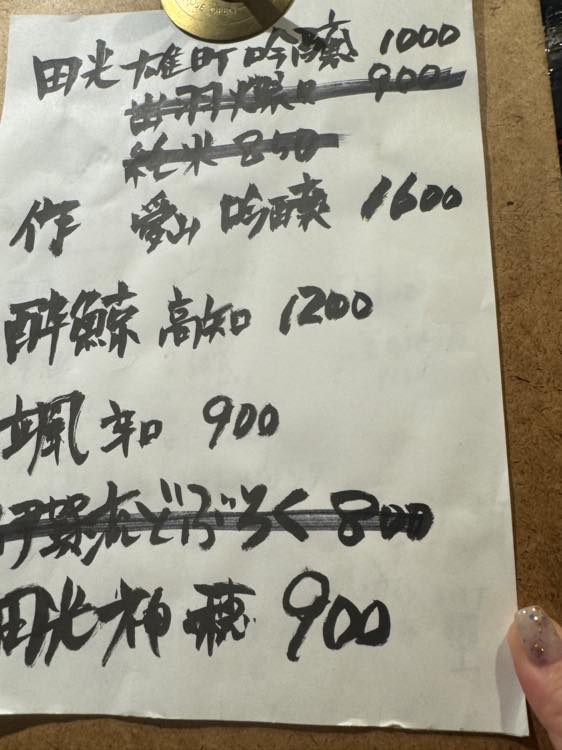 田光 雄町 吟醸 1000
出羽燦々 900
純米 850
作 愛山 吟醸 1600
酔鯨 高知 1200
颯 辛口 900
伊賀 どぶろく 800
田光 神の穂 900